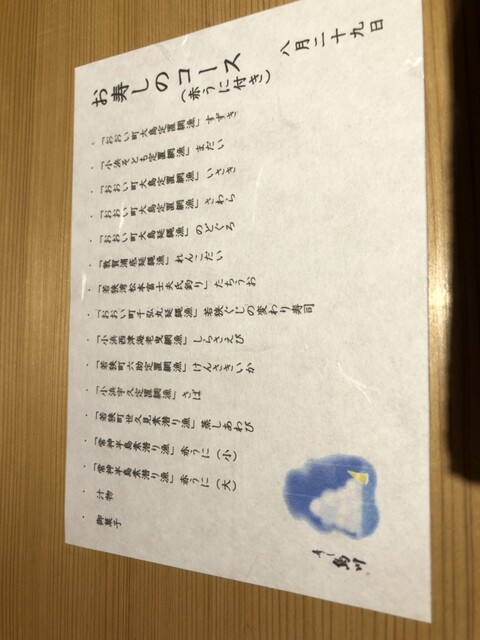 八月二十九日
お寿しのコース
(赤うに付き)
・「おおい町大島定置網漁」すずき
・「小浜そとも定置網漁」まだい
・「おおい町大島定置網漁」いさき
・「おおい町大島定置網漁」さわら
・「おおい町大島延縄漁」のどぐろ
・「敦賀浦底延縄漁」れんこだい
・「若狭湾松本富士夫氏釣り」たちうお
・「おおい町千弘丸延縄漁」若狭ぐじの変わり寿司
・「小浜西津海老曳網漁」しらさえび
・「若狭町六助定置網漁」けんさきいか
・「小浜宇久定置網漁」さば
・「若狭町世久見素潜り漁」蒸しあわび
・「常神半島素潜り漁」赤うに(小)
・「常神半島素潜り漁」赤うに(大)
・汁物
・御菓子
すし 島川